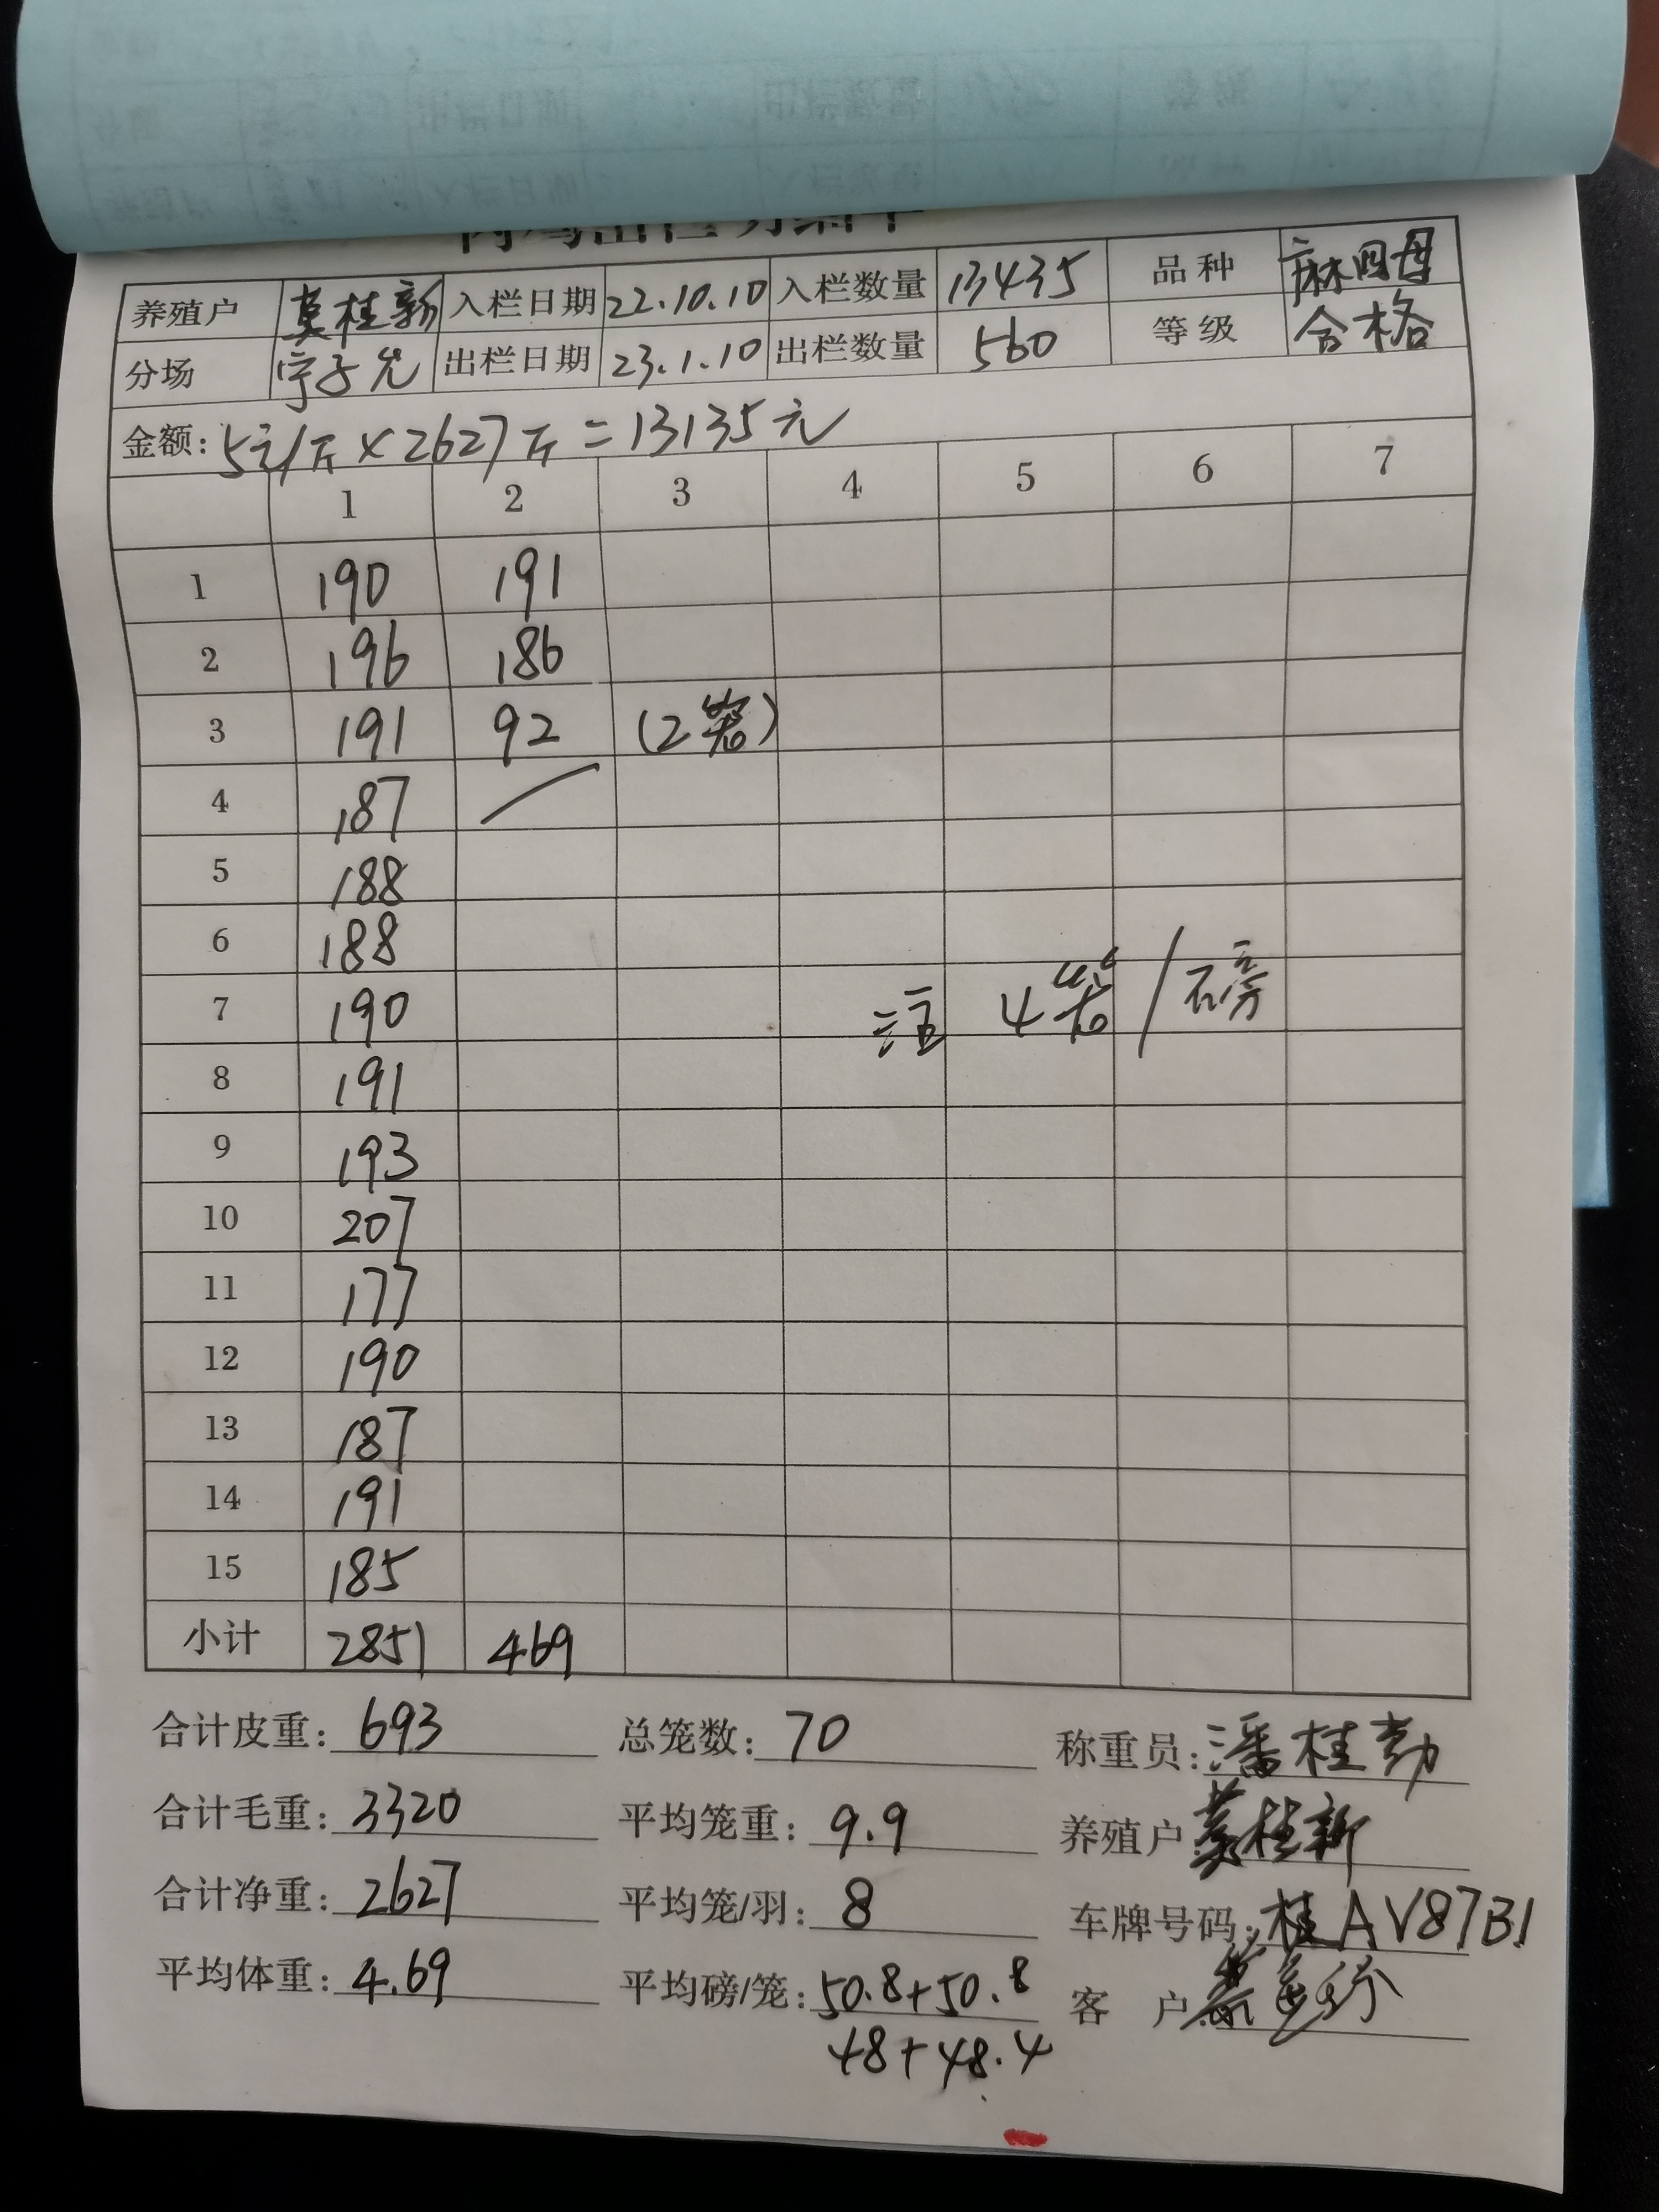 养殖户 莫桂新 入栏日期 22.10.10 入栏数量 13435 品种 麻四母
分场 出栏日期 23.1.10 出栏数量 560 等级 合格
金额: 5元/斤×2627斤=13135元
1 2 3 4 5 6 7
1 190 191
2 196 186
3 191 92 (2笼)
4 187 /
5 188
6 188
7 190 注 4笼/磅
8 191
9 193
10 207
11 177
12 190
13 187
14 191
15 185
小计 2851 469
合计皮重: 693 总笼数: 70 称重员: 潘桂勃
合计毛重: 3320 平均笼重: 9.9 养殖户: 莫桂新
合计净重: 2627 平均笼/羽: 8 车牌号码: 桂AV87B1
平均体重: 4.69 平均磅/笼: 50.8+50.8 客 户
48+48.4